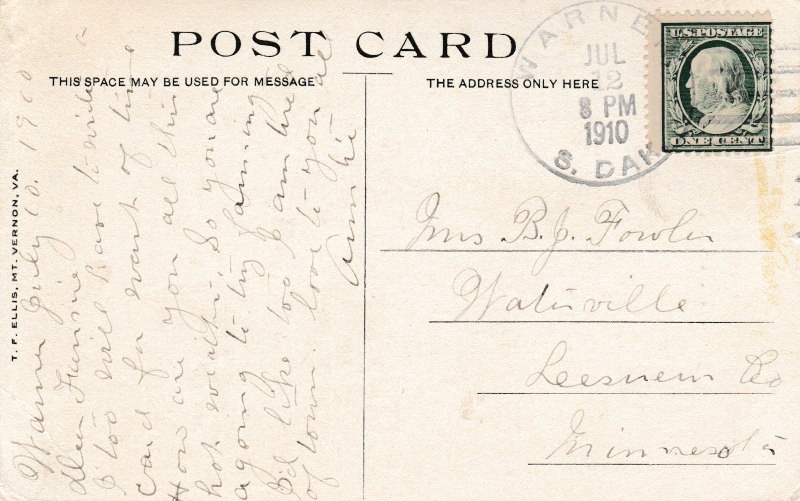 POST CARD
THIS SPACE MAY BE USED FOR MESSAGE
THE ADDRESS ONLY HERE
T. F. ELLIS, MT. VERNON, VA.
WARNE
JUL
12
8 PM
1910
S. DAK
U.S. POSTAGE
ONE CENT
Warner July 10. 1910
dear Fannie
I too will have to write
card for want of time
How are you all this
hot weather. So you are
agoing to try farming
I'd like too I am tired
of town. love to you all
Mrs B. J. Fowler
Waterville
Lesueur Co
Minnesota